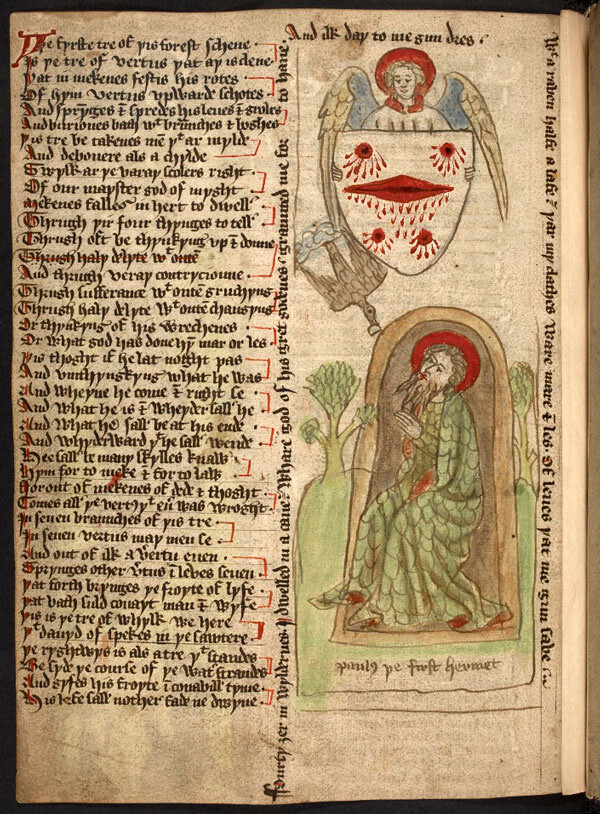 Þe fyrste tre of þis forest schene
Is þe tre of vertus þat ay is clene
Þat in mekenes festis his rotes
Of hym vertus upwarde schotes
And sprynges & spredes his leves & groves
And buriones bath wt braunches & boghes
Þis tre be takenes men þt ar mylde
And debonere als a chylde
Swylk ar þe varay scolers right
Of our mayster god of myght
Mekenes falles in hert to dwell
Thrugh þir four thynges to tell
Thrugh oft be thynkyng up & donne
Thrugh haly delyte wt outen
And thrugh veray contrycioune
Thrugh sufferance wt outen gruchyng
Thrugh haly delyte wt outen chaungyng
Or thynkyng of his wrechenes
Or what god has done hym mar or les
Þis thoght if he lat noght pas
And umthynkyng what he was
And wheyne he come & right se
And what he is & wheyder sall he
And what he sall be at his ende
And whyderward þt he sall wende
Hee sall be many skylles knaw
Hym for to meke & for to law
For out of mekenes of dede & thoght
Comes all þe vertus þt euer was wroght
In seven braunches of þis tre
In seven vertus may men se
And out of ilk a vertu even
Sprynges other vertus & leves seven
Þat forth brynges þe froyte of lyfe
Þat bath suld covayt man & wyfe
Þis is þe tre of whylk we here
Þt davyd of spekes in þe sawtere
Þe ryghtwys is als a tre þt standes
Be syde þe course of þe water strandes
And gyfes his froyte in covabill tyme
His lefe sall nother fade ne dwyne
fourty ȝer in wyldernes I dwelled in a cave Whare god of his gret godenes graunted me for to have
And ilk day to me gun dres
Wt a raven halfe a lafe & þar my clathes ware mare & les of leves þat me gun save
paulus þe first hermet